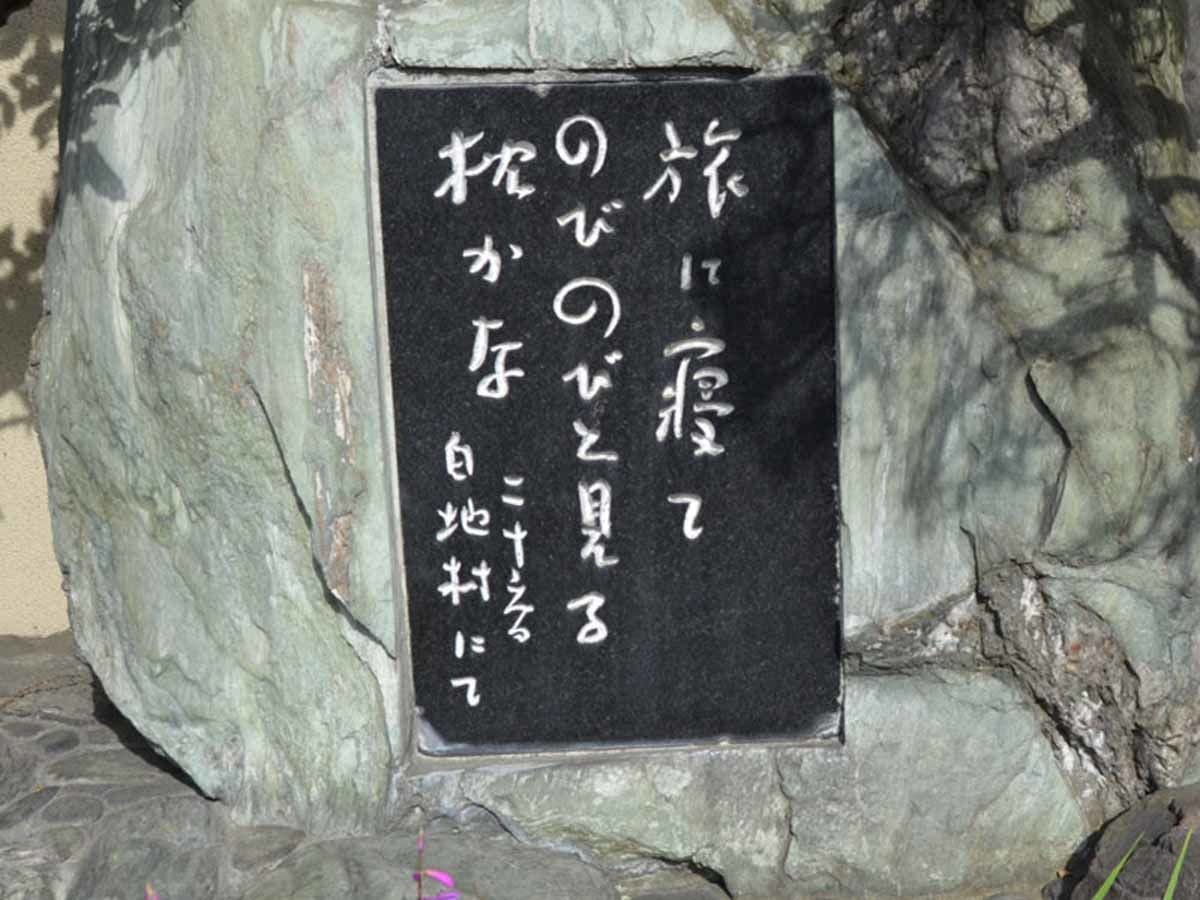 旅に寝て
のびのびと見る
枕かな
白地村にて